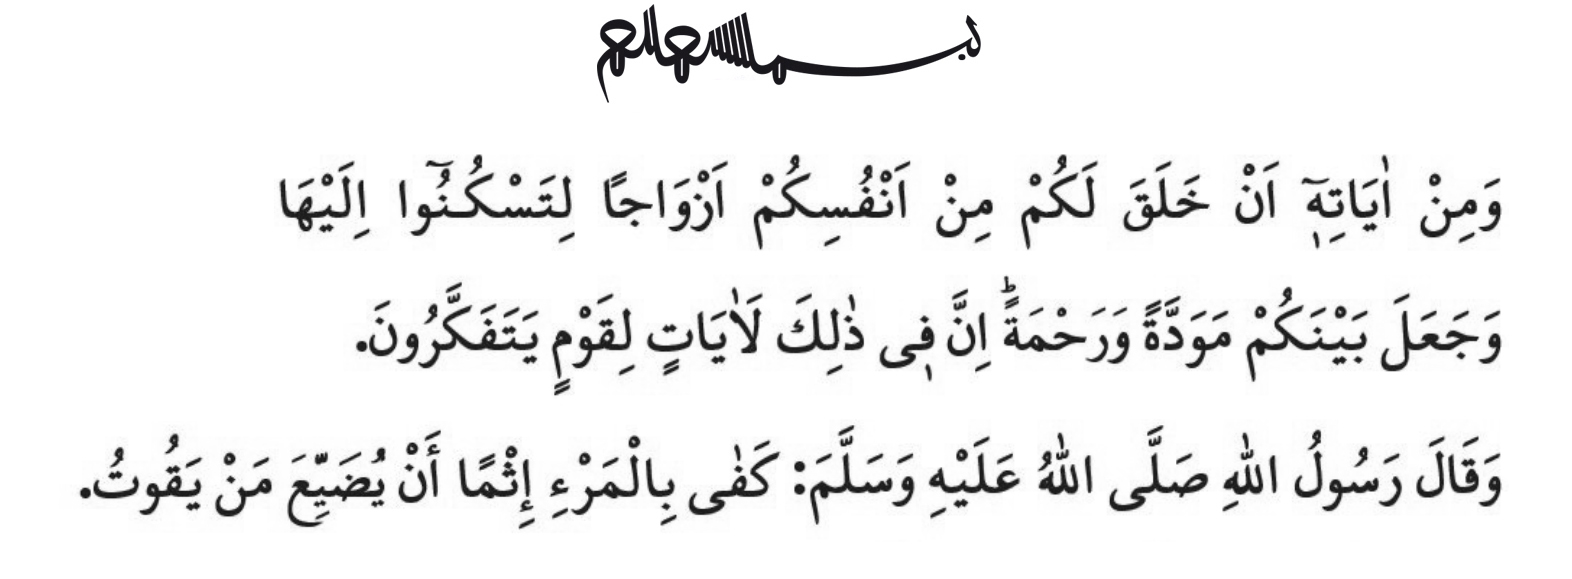 بسم الله الرحمن الرحيم
وَمِنْ اٰيَاتِه۪ٓ اَنْ خَلَقَ لَكُمْ مِنْ اَنْفُسِكُمْ اَزْوَاجًا لِتَسْكُنُٓوا اِلَيْهَا
وَجَعَلَ بَيْنَكُمْ مَوَدَّةً وَرَحْمَةًۜ اِنَّ ف۪ى ذٰلِكَ لَاٰيَاتٍ لِقَوْمٍ يَتَفَكَّرُونَ.
وَقَالَ رَسُولُ اللهِ صَلَّى اللهُ عَلَيْهِ وَسَلَّمَ: كَفٰى بِالْمَرْءِ إِثْمًا أَنْ يُضَيِّعَ مَنْ يَقُوتُ.